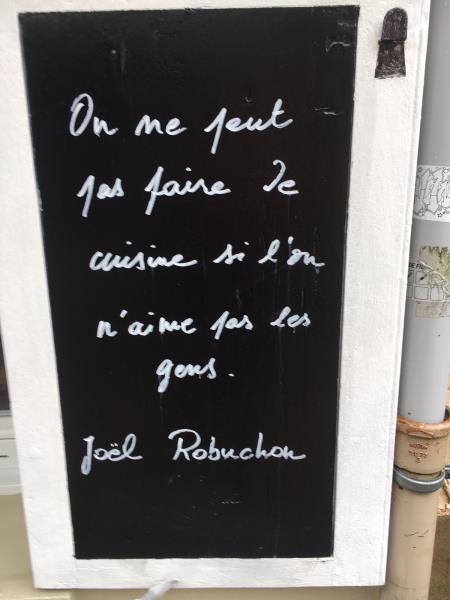 On ne peut
pas faire de
cuisine si l'on
n'aime pas les
gens.
Joël Robuchon